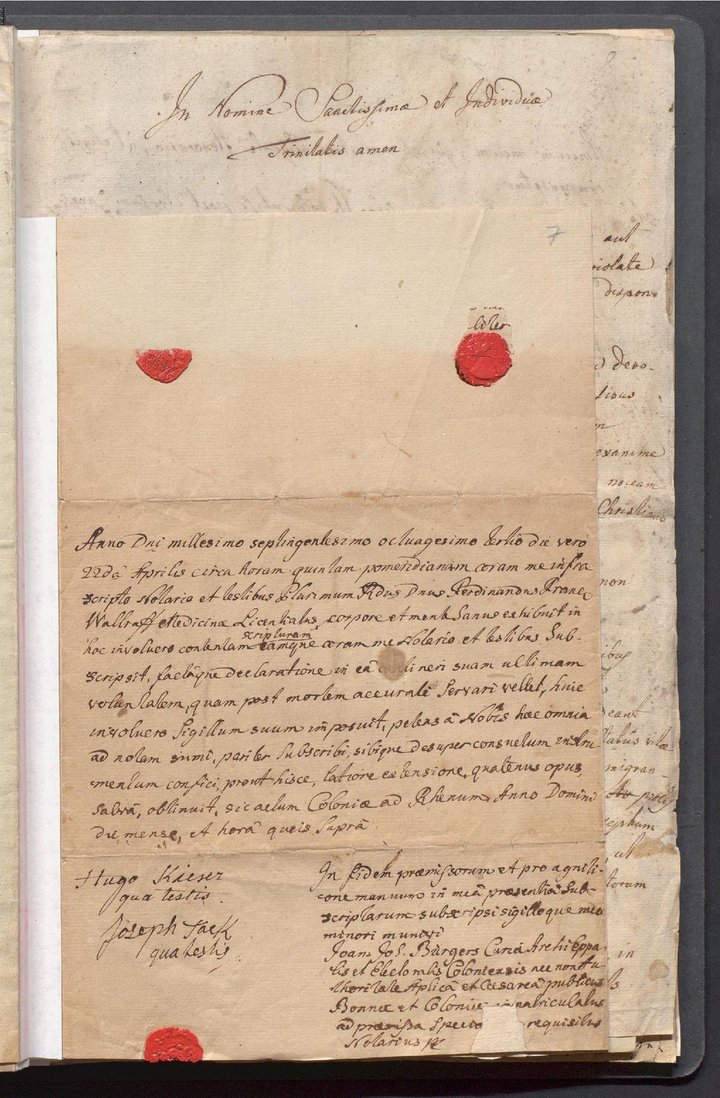 In Nomine Sanctissimæ et Individuæ
Trinitatis amen
7
aut
violate
dispon-
devo-
exanime
noceam
Christi
non
Anno Dni millesimo septingentesimo octuagesimo tertio die vero
22dâ Aprilis circa horam quintam pomeridianam coram me infra
scripto Notario et testibus plurimum Rdus Dnus Ferdinandus Franc
Wallraff Medicinæ Licentiatus, corpore et mente Sanus exhibuit in
hoc involucro contentam scripturam eamque coram me Notario et testibus Sub-
scripsit, factâque declaratione in eâ contineri suam ultimam
voluntatem, quam post mortem accuratè Servari vellet, huic
involucro Sigillum suum imposuit, petens â Nobis hæc omnia
ad notam sumi, pariter Subscribi, sibique desuper consuetum instru
mentum confici, prout hisce, latiore extensione, quatenus opus,
salvâ, obtinuit, sic actum Coloniæ ad Rhenum Anno Domini
die mense, et horâ queis Suprâ.
Hugo
qua testis.
Joseph
qua testis
In fidem præmissorum et pro agniti-
one manuum in meâ præsentiâ Sub-
scriptarum subscripsi sigilloque meo
minori munivi
Joan Jos. Bürgers Curiæ Archi Eppa
lis et Electoralis Coloniensis nec non Au
thoritate Aplicâ et Cæsareâ publicus
Bonnæ et Coloniæ immatriculatus
ad præmissa requisitus
Notarius
vitæ
migran-
ut
in